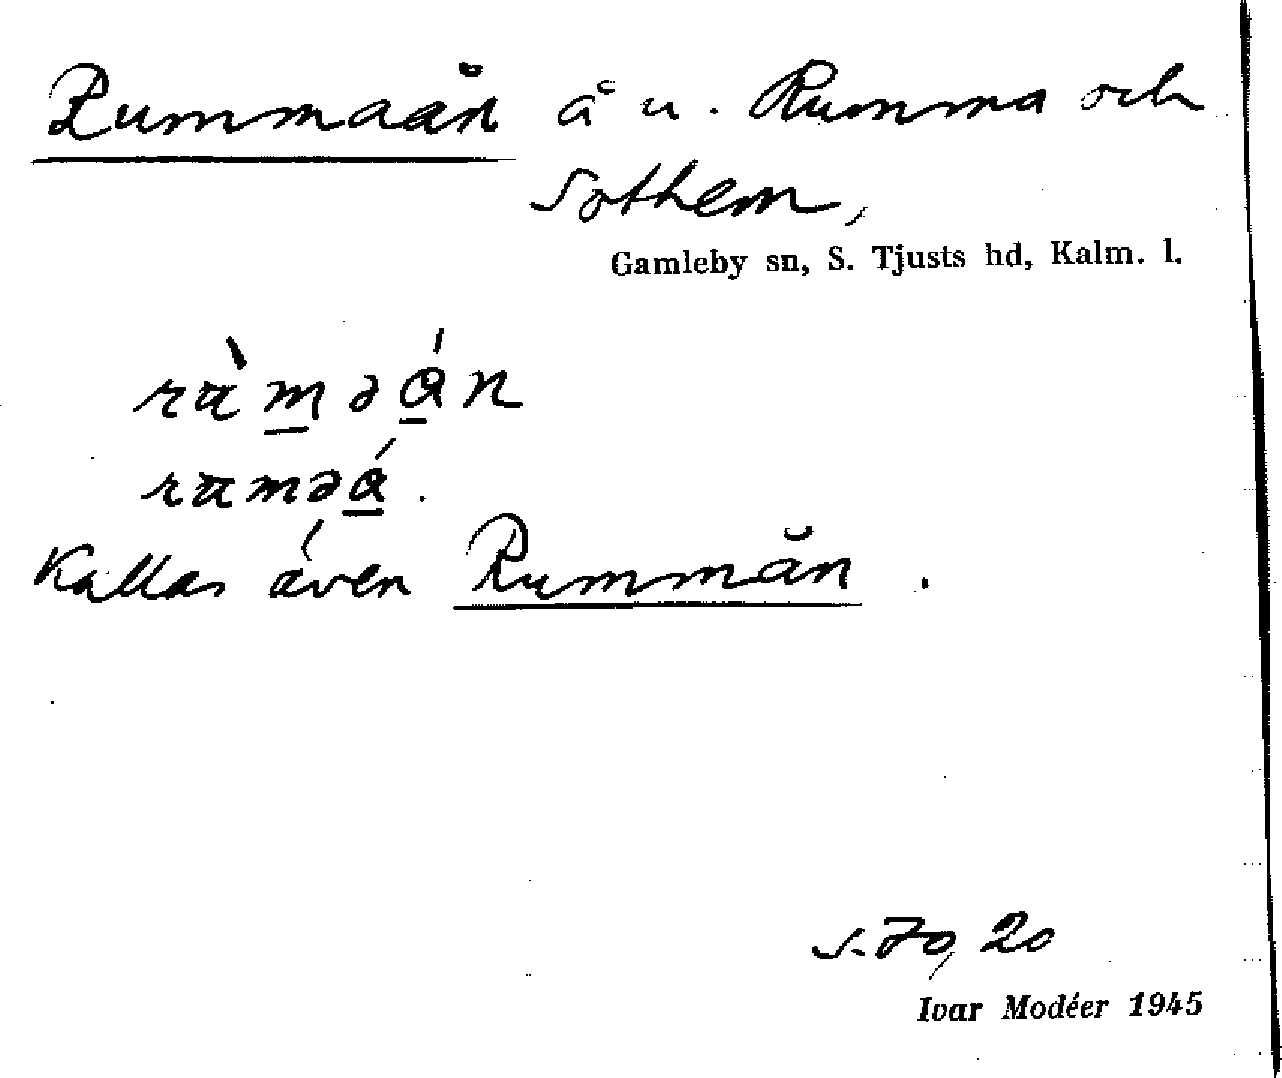 Rummaån å u. Rumma och
Sothem,
Gamleby sn, S. Tjusts hd, Kalm. l.
Kallas även Rummån.
s. 70, 20
Ivar Modéer 1945